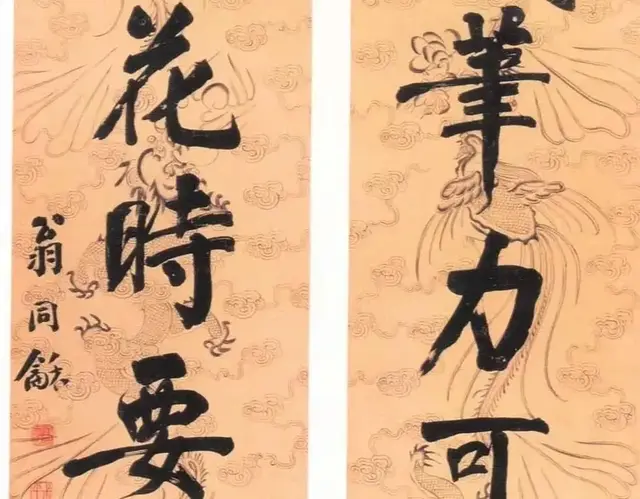 筆力可
花時要
翁同龢